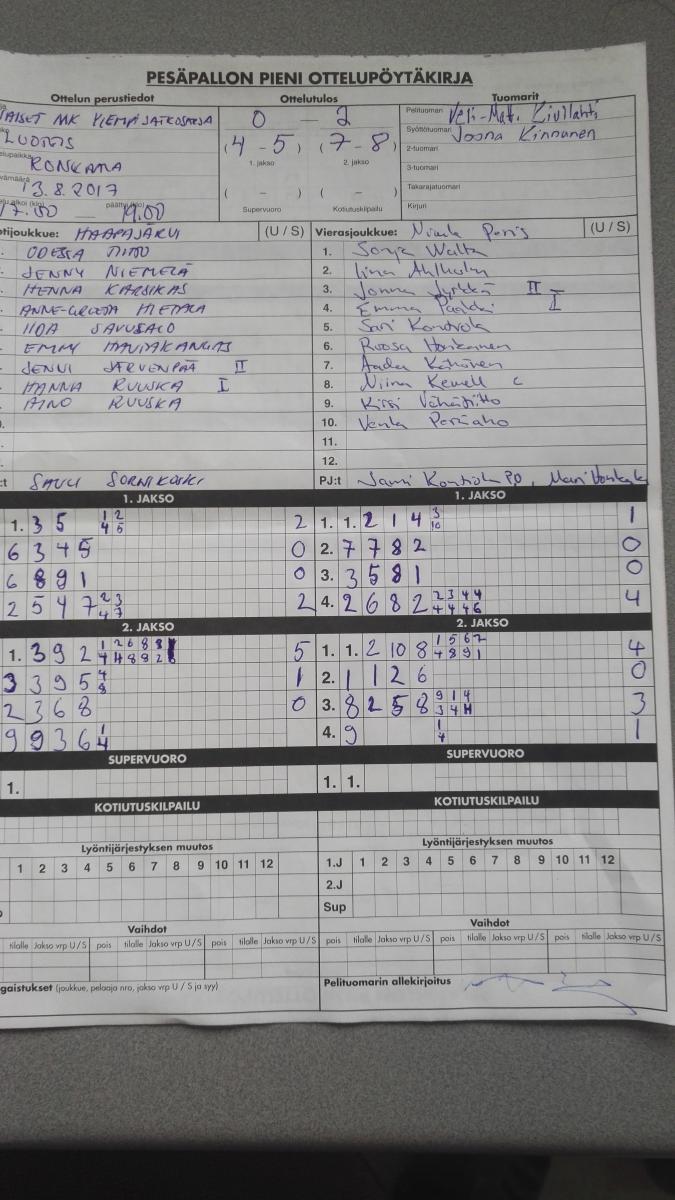 PESÄPALLON PIENI OTTELUPÖYTÄKIRJA
Ottelun perustiedot Ottelutulos Tuomarit
AISET MK YLEMPI JATKOSARJA 0 – 2 Pelituomari Veli-Mat. Kivilahti
(4 - 5) (7 - 8) Syöttötuomari Joona Kinnunen
1. jakso 2. jakso 2-tuomari
RONKALA 3-tuomari
13.8.2017 ( - ) ( - ) Takarajatuomari
17.00 – 19.00 Supervuoro Kotiutuskilpailu Kirjuri
tijoukkue: HAAPAJÄRVI (U / S) Vierasjoukkue: (U / S)
ODESSA 1. Sonja
JENNY NIEMELÄ 2. Iina
HENNA KARSIKAS 3. Jonna Jyrkkä II
ANNE-GREETA HIETALA 4. Emma I
IIDA SAVUSALO 5. Sari Kontiola
EMMY HAUTAKANGAS 6. Roosa
JENNI JÄRVENPÄÄ II 7.
HANNA RUUSKA I 8. Niina C
AINO RUUSKA 9. Kirsi
10. Venla Peräaho
11.
12.
:t SAULI PJ:t
1. JAKSO 1. JAKSO
1. 3 5 1 2 2 1. 1. 2 1 4 3 1
4 5 10
6 3 4 5 0 2. 7 7 8 2 0
6 8 9 1 0 3. 3 5 8 1 0
2 5 4 7 2 3 2 4. 2 6 8 2 2 3 4 4 4
4 7 4 4 4 6
2. JAKSO 2. JAKSO
1. 3 9 2 1 2 6 8 8 5 1. 1. 2 10 8 1 5 6 7 4
4 8 9 1
3 3 9 5 4 1 2. 1 1 2 6 0
8
2 3 6 8 0 3. 8 2 5 8 9 1 4 3
9 9 3 6 1 4. 9 1 1
4
SUPERVUORO SUPERVUORO
1. 1. 1.
KOTIUTUSKILPAILU KOTIUTUSKILPAILU
Lyöntijärjestyksen muutos Lyöntijärjestyksen muutos
1 2 3 4 5 6 7 8 9 10 11 12 1.J 1 2 3 4 5 6 7 8 9 10 11 12
2.J
Sup
Vaihdot Vaihdot
tilalle Jakso vrp U/S pois tilalle Jakso vrp U/S pois tilalle Jakso vrp U/S pois tilalle Jakso vrp U/S pois tilalle Jakso vrp U/S pois tilalle Jakso vrp U/S
gaistukset (joukkue, pelaaja nro, jakso vrp U / S ja syy) Pelituomarin allekirjoitus